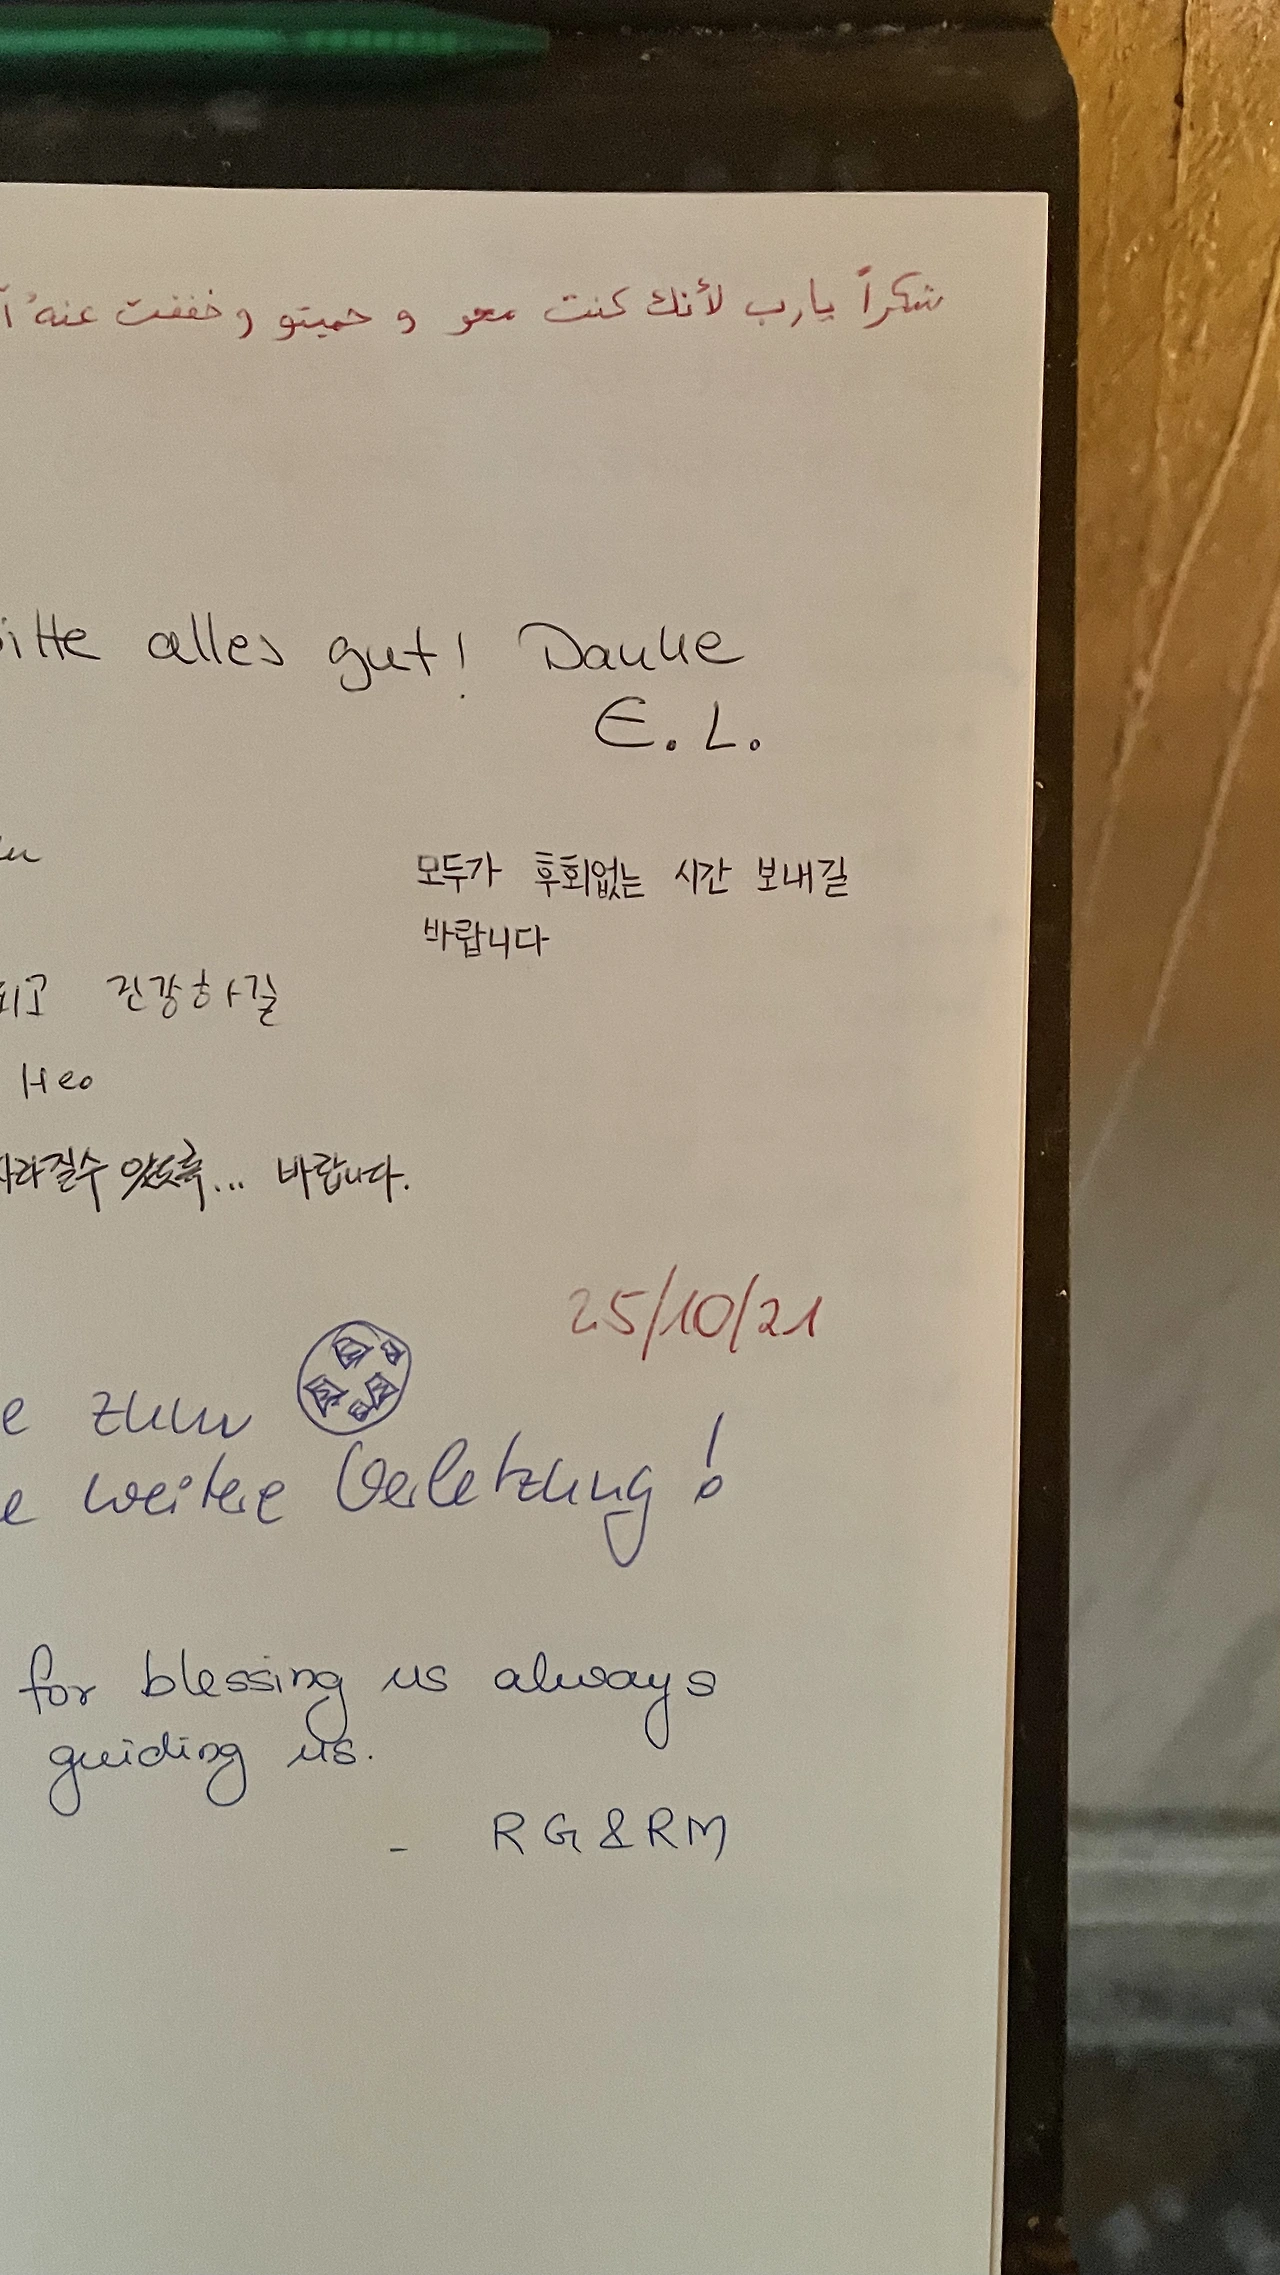 شكراً يارب لأنك كنت معو و حميتو و خففت عنهُ
bitte alles gut! Danke
E. L.
모두가 후회없는 시간 보내길
바랍니다
되고 건강하길
Heo
사라질수 있도록... 바랍니다.
25/10/21
e zum
e weitere Verletzung!
for blessing us always
guiding us.
- RG&RM